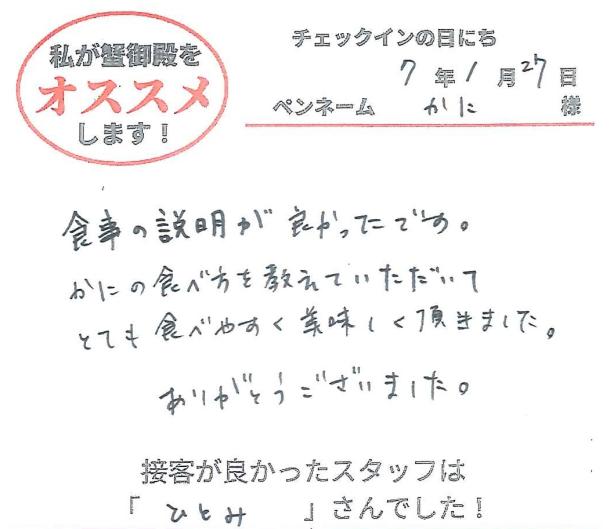 私が蟹御殿を
オススメ
します！
チェックインの日にち
7年1月27日
ペンネーム かに 様
食事の説明が良かったです。
かにの食べ方を教えていただいて
とても食べやすく美味しく頂きました。
ありがとうございました。
接客が良かったスタッフは
「ひとみ」さんでした！